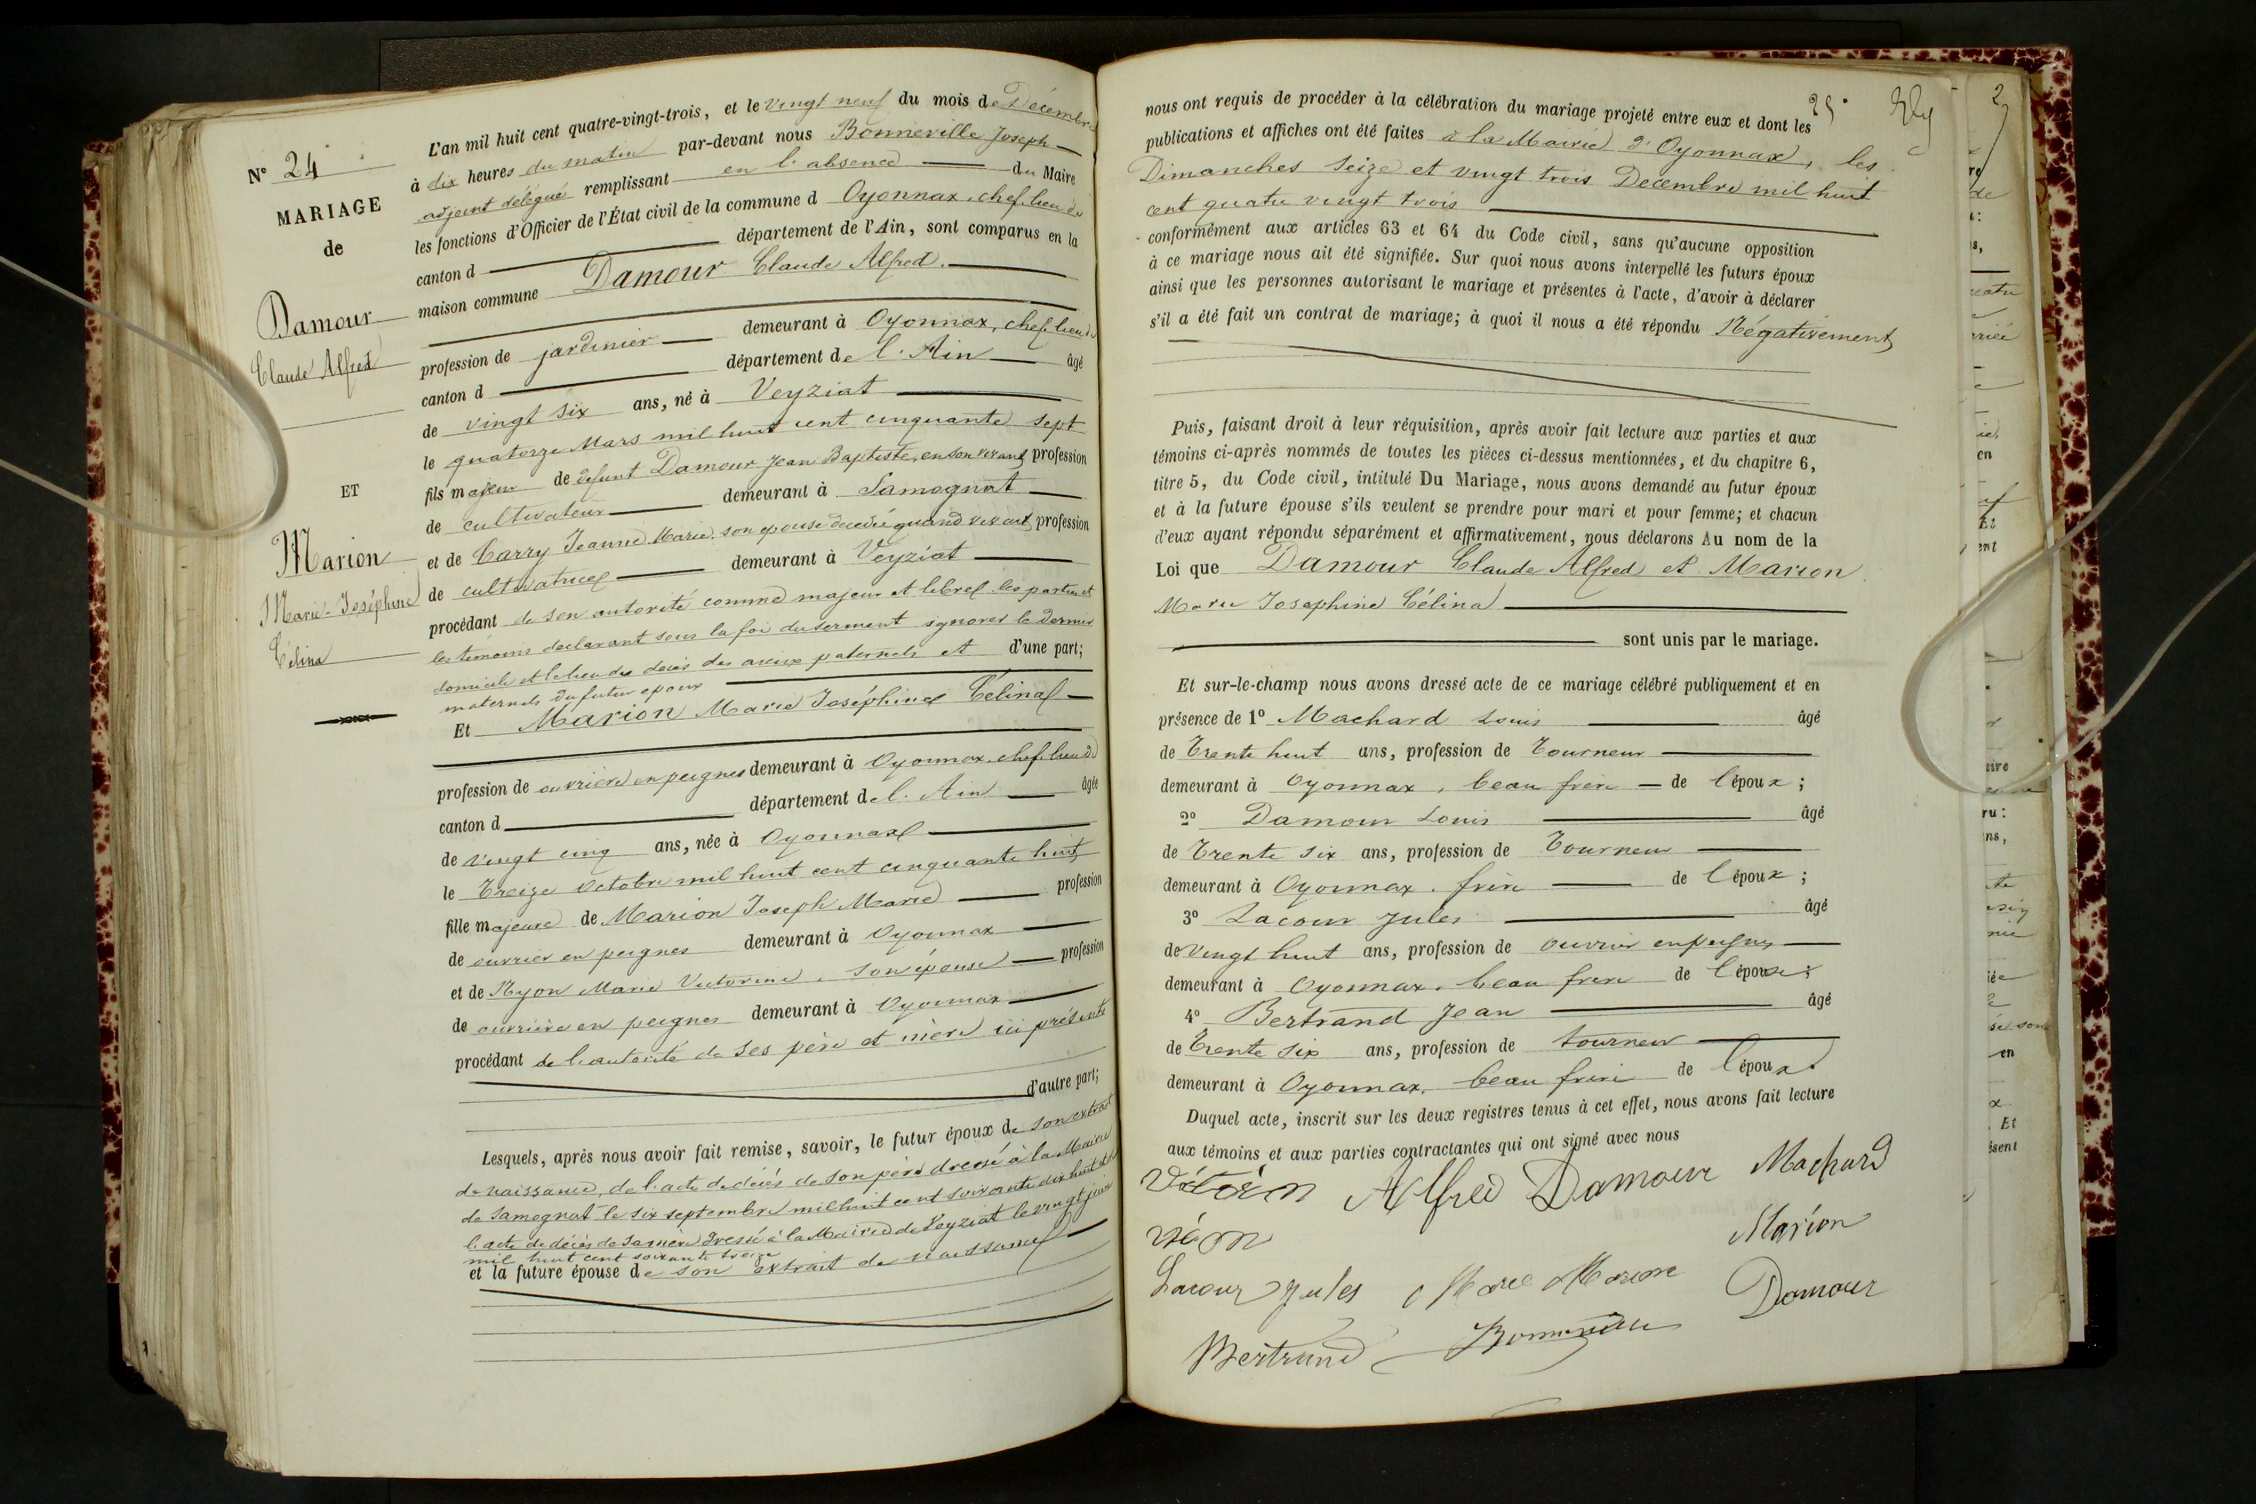 N° 24
MARIAGE
de
Damour
Claude Alfred
ET
Marion
Marie-Joséphine
Célina
L'an mil huit cent quatre-vingt-trois, et le vingt neuf du mois de Décembre
à dix heures du matin par-devant nous Bonneville Joseph
adjoint délégué remplissant en l'absence du Maire
les fonctions d'Officier de l'État civil de la commune d Oyonnax, chef lieu de
canton d département de l'Ain, sont comparus en la
maison commune Damour Claude Alfred.
profession de jardinier demeurant à Oyonnax, chef lieu de
canton d département de l'Ain âgé
de vingt six ans, né à Veyziat
le quatorze Mars mil huit cent cinquante sept
fils majeur de défunt Damour Jean Baptiste, en son vivant profession
de cultivateur demeurant à Samognat
et de Carry Jeanne Marie son épouse décédée quand vivait profession
de cultivatrice demeurant à Veyziat
procédant de son autorité comme majeur et libre les parties et
les témoins déclarant sous la foi du serment ignorer le dernier
domicile et le lieu des décès des aïeux paternels et d'une part;
maternels du futur époux
Et Marion Marie Joséphine Célina
profession de ouvrière en peignes demeurant à Oyonnax, chef lieu de
canton d département de l'Ain âgée
de vingt cinq ans, née à Oyonnax
le treize octobre mil huit cent cinquante huit
fille majeure de Marion Joseph Marie profession
de ouvrier en peignes demeurant à Oyonnax
et de Nyon Marie Victorine, son épouse profession
de ouvrière en peignes demeurant à Oyonnax
procédant de l'autorité de ses père et mère ici présents
d'autre part;
Lesquels, après nous avoir fait remise, savoir, le futur époux de son extrait
de naissance, de l'acte de décès de son père dressé à la Mairie
de Samognat le six septembre mil huit cent soixante dix huit et de
l'acte de décès de sa mère dressé à la Mairie de Veyziat le vingt juin
mil huit cent soixante treize
et la future épouse de son extrait de naissance
25
nous ont requis de procéder à la célébration du mariage projeté entre eux et dont les
publications et affiches ont été faites à la Mairie d'Oyonnax, les
Dimanches seize et vingt trois Décembre mil huit
cent quatre vingt trois
conformément aux articles 63 et 64 du Code civil, sans qu'aucune opposition
à ce mariage nous ait été signifiée. Sur quoi nous avons interpellé les futurs époux
ainsi que les personnes autorisant le mariage et présentes à l'acte, d'avoir à déclarer
s'il a été fait un contrat de mariage; à quoi il nous a été répondu Négativement
Puis, faisant droit à leur réquisition, après avoir fait lecture aux parties et aux
témoins ci-après nommés de toutes les pièces ci-dessus mentionnées, et du chapitre 6,
titre 5, du Code civil, intitulé Du Mariage, nous avons demandé au futur époux
et à la future épouse s'ils veulent se prendre pour mari et pour femme; et chacun
d'eux ayant répondu séparément et affirmativement, nous déclarons Au nom de la
Loi que Damour Claude Alfred et Marion
Marie Josephine Célina
sont unis par le mariage.
Et sur-le-champ nous avons dressé acte de ce mariage célébré publiquement et en
présence de 1° Machard Louis âgé
de Trente huit ans, profession de Tourneur
demeurant à Oyonnax, beau frère de l'époux;
2° Damour Louis âgé
de Trente six ans, profession de Tourneur
demeurant à Oyonnax. frère de l'époux;
3° Lacour Jules âgé
de vingt huit ans, profession de ouvrier en peignes
demeurant à Oyonnax. beau frère de l'épouse;
4° Bertrand Jean âgé
de Trente six ans, profession de tourneur
demeurant à Oyonnax, beau frère de l'époux.
Duquel acte, inscrit sur les deux registres tenus à cet effet, nous avons fait lecture
aux témoins et aux parties contractantes qui ont signé avec nous
Alfred Damour Machard
Marion
Lacour Jules Marie Marion Damour
Bertrand Bonneville